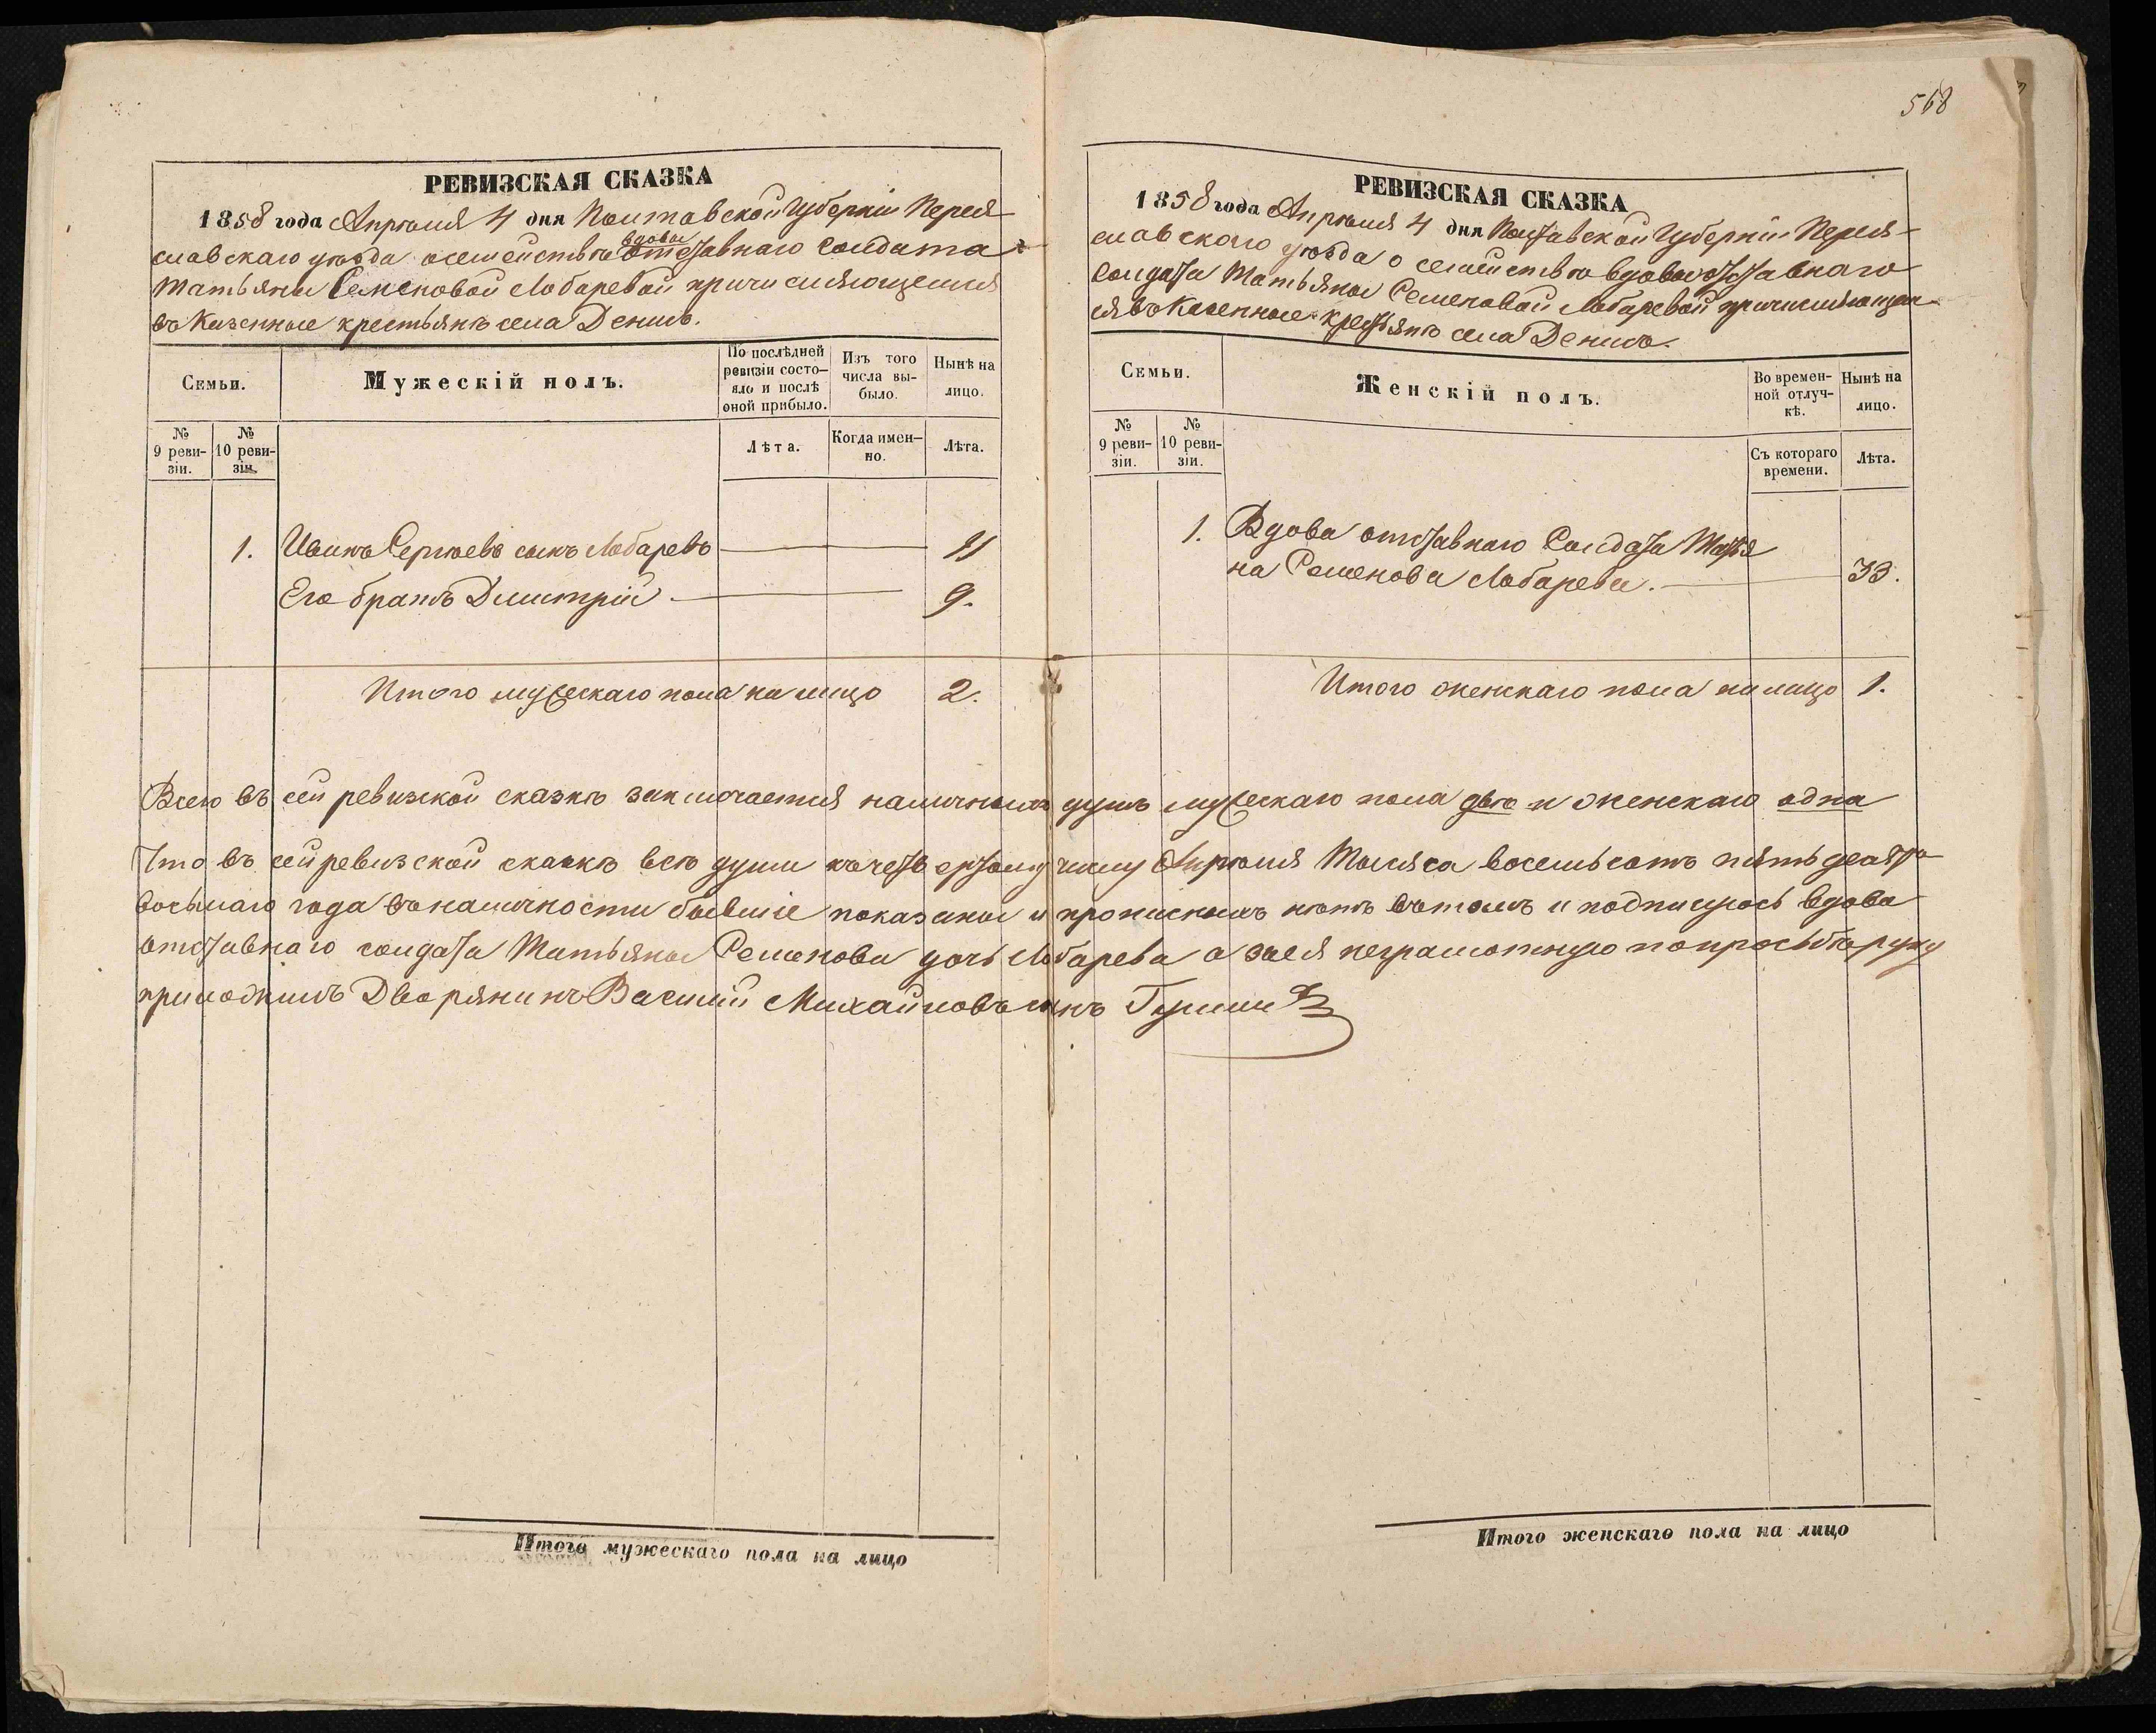 568
РЕВИЗСКАЯ СКАЗКА
1858 года Апрѣля 4 дня Полтавской Губерніи Перея-
славскаго уѣзда осемействѣ вдовы отставнаго солдата
Татьяны Семеновой Лобаревой причисляющемся
въ Казенные крестьянѣ села Денисъ.
Семьи.
Мужескій полъ.
По послѣдней
ревизіи состо-
яло и послѣ
оной прибыло.
Изъ того
числа вы-
было.
Нынѣ на
лицо.
№
9 реви-
зіи.
№
10 реви-
зіи.
Лѣта.
Когда имен-
но.
Лѣта.
1. Иванъ Сергѣевъ сынъ Лобаревъ 11
Его братъ Дмитрій 9.
Итого мужескаго пола на лицо 2.
РЕВИЗСКАЯ СКАЗКА
1858 года Апрѣля 4 дня Полтавской Губерніи Перея-
славскаго уѣзда о семействѣ вдовы отставнаго
солдата Татьяны Семеновой Лобаревой причисляющем-
ся въ Казенные крестьянѣ села Денисъ.
Семьи.
Женскій полъ.
Во времен-
ной отлуч-
кѣ.
Нынѣ на
лицо.
№
9 реви-
зіи.
№
10 реви-
зіи.
Съ котораго
времени.
Лѣта.
1. Вдова отставнаго Солдата Татья
на Семенова Лобарева. 33.
Итого женскаго пола на лицо 1.
Всего въ сей ревизской сказкѣ заключается наличныхъ душъ мужескаго пола двѣ и женскаго одна
Что въ сей ревизской сказкѣ всѣ души къ четвертому числу Апрѣля Мѣсяца восемьсотъ пятьдесятъ
восьмаго года въ наличности бывшіе показаны и прописныхъ нѣтъ въ томъ и подписуюсь вдова
отставнаго солдата Татьяна Семенова дочь Лобарева а за ея неграмотную по просьбѣ руку
приложилъ Дворянинъ Василій Михайловъ сынъ
Итого мужескаго пола на лицо
Итого женскаго пола на лицо